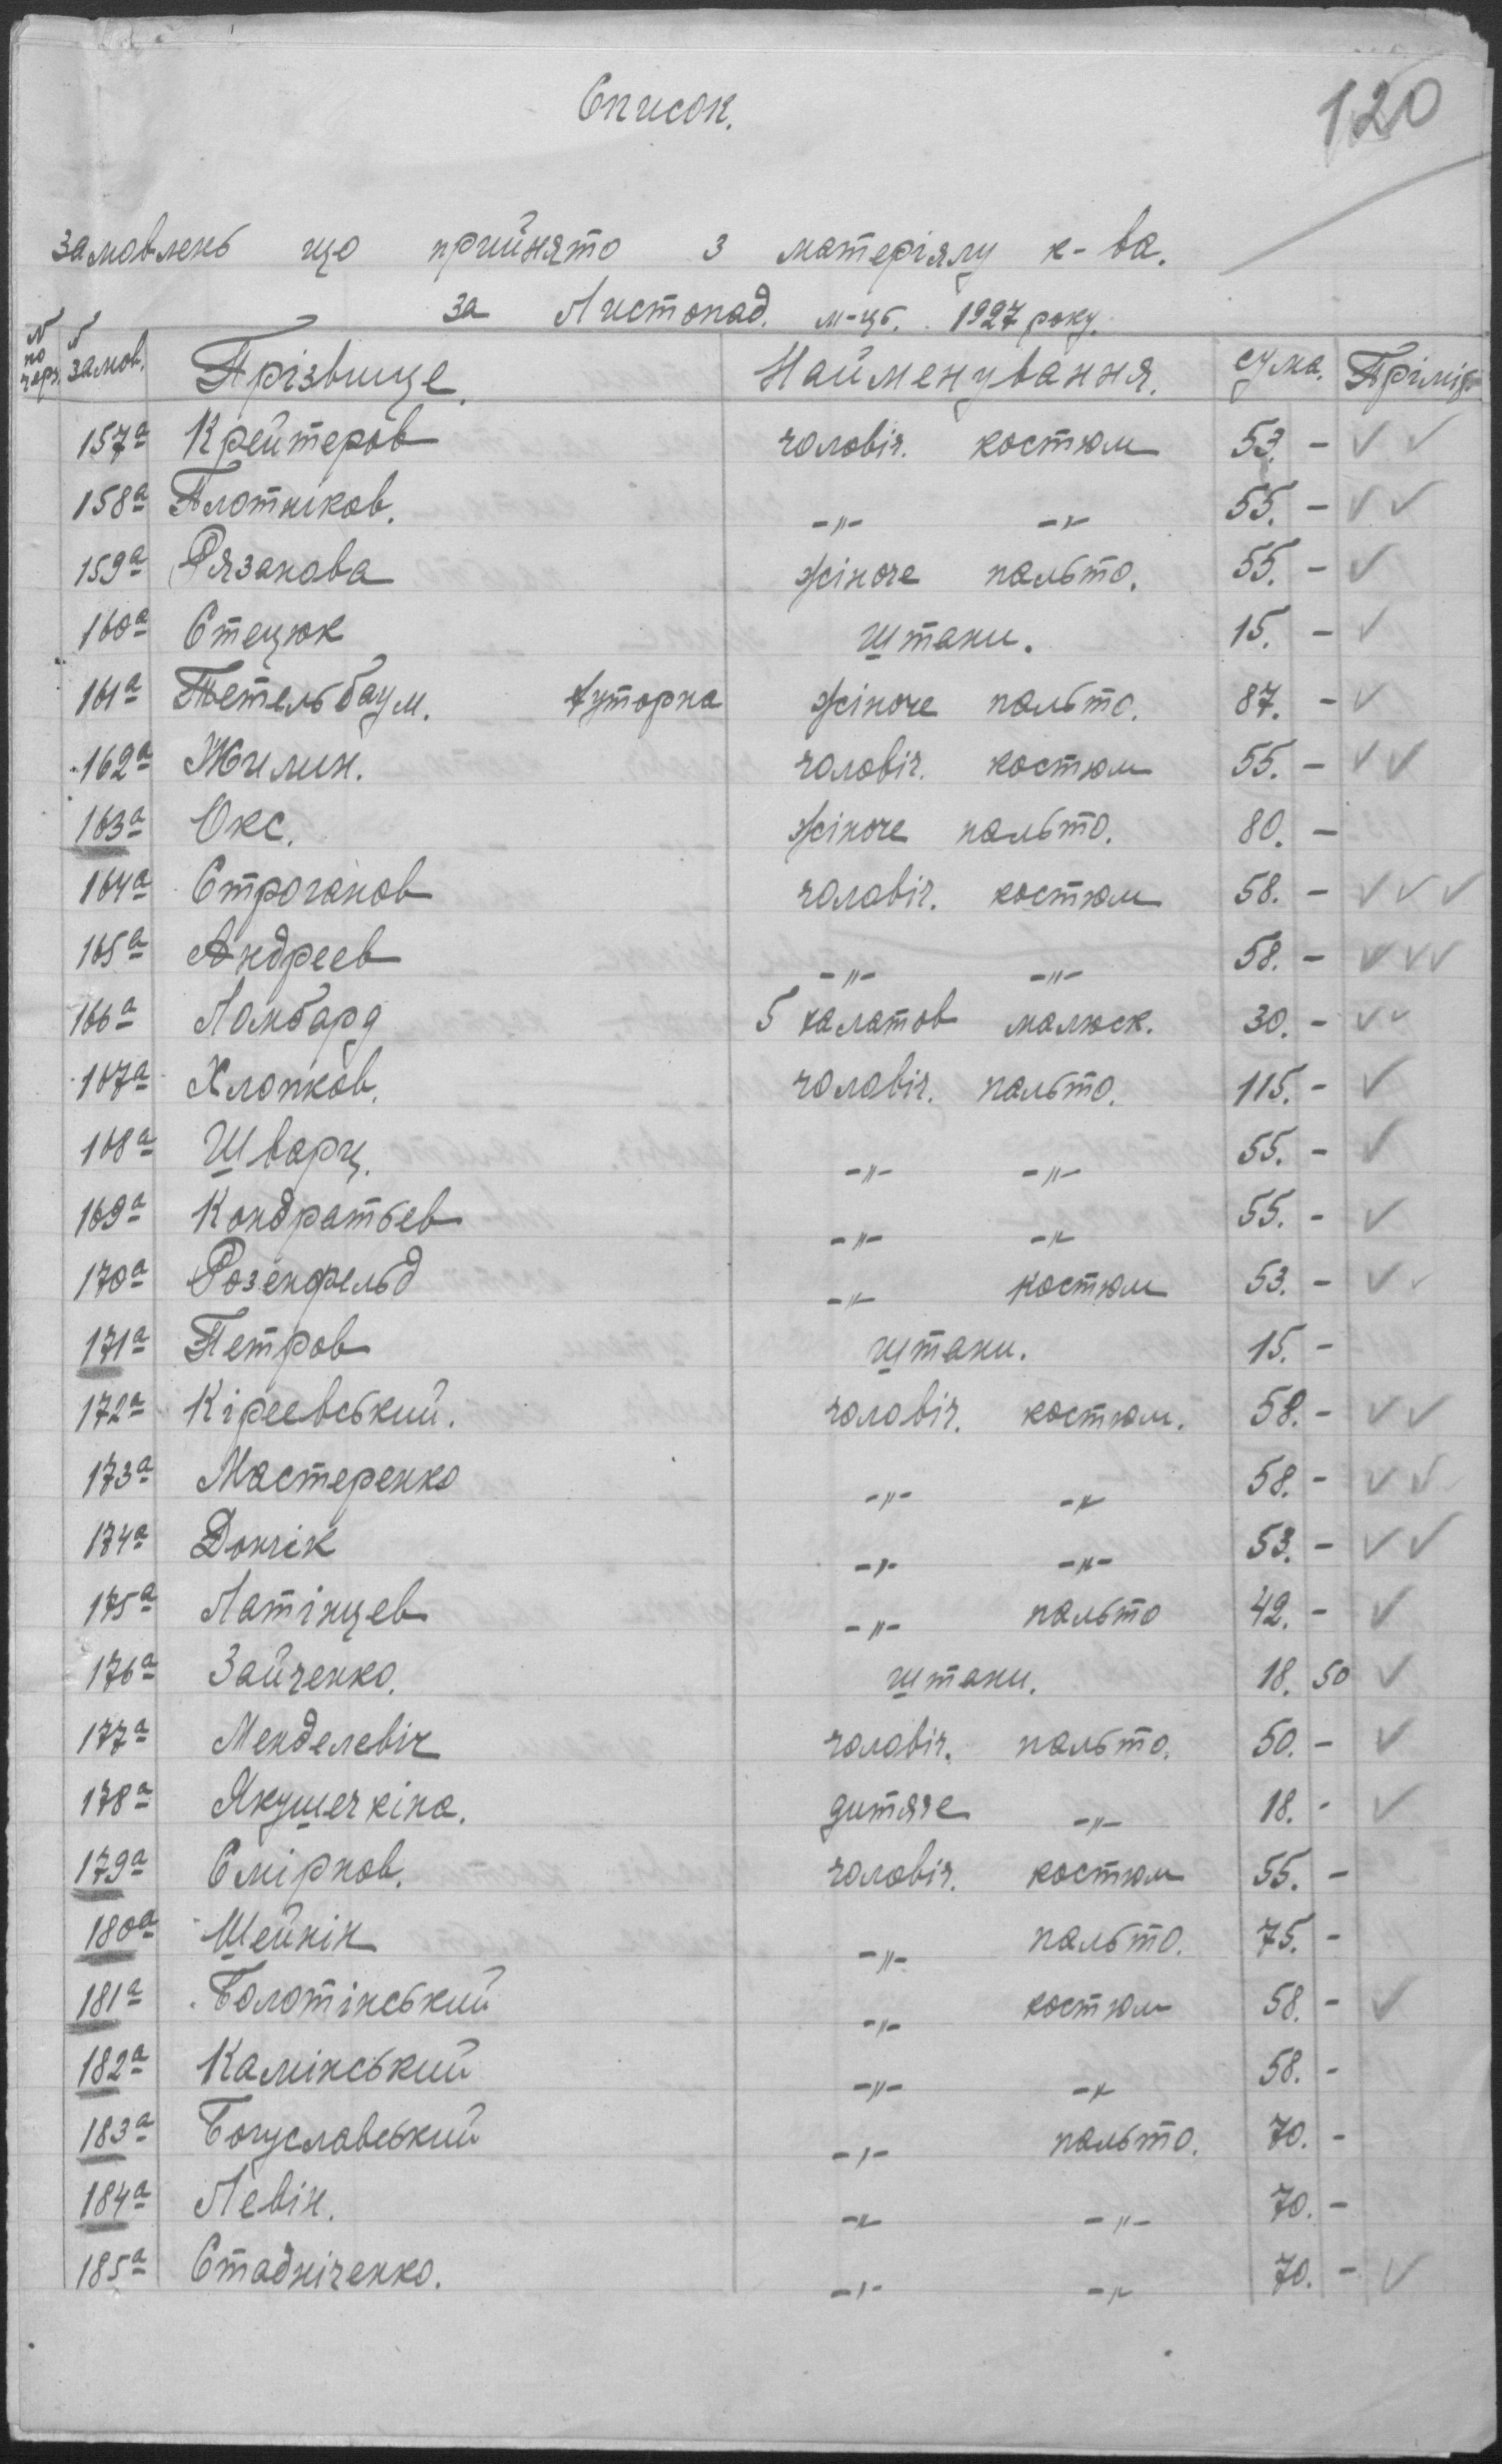 120
Список.
замовлень що прийнято з матеріялу к-ва.
За Листопад. м-ць. 1927 року.
N по черз. N замов. Прізвище. Найменування. сума. Приміт.
157а Крейтеров чоловіч. костюм 53. - ✓ ✓
158а Плотніков. -"- -"- 55. - ✓ ✓
159а Рязанова жіноче пальто. 55. - ✓
160а Стецюк штани. 15. - ✓
161а Тетельбаум. хуторна жіноче пальто. 87. - ✓
162а Жилин. чоловіч. костюм 55. - ✓ ✓
163а Окс. жіноче пальто. 80. -
164а Строганов чоловіч. костюм 58. - ✓ ✓ ✓
165а Андреев -"- -"- 58. - ✓ ✓ ✓
166а Ломбард 5 халатов малюск. 30. - ✓ ✓
167а Хлопков. чоловіч. пальто. 115. - ✓
168а Шварц. -"- -"- 55. - ✓
169а Кондратьев -"- -"- 55. - ✓
170а Розенфельд -"- костюм 53. - ✓ ✓
171а Петров штани. 15. -
172а Кіреевський. чоловіч. костюм. 58. - ✓ ✓
173а Мастеренко -"- -"- 58. - ✓ ✓
174а Дончік -"- -"- 53. - ✓ ✓
175а Латінцев -"- пальто 42. - ✓
176а Зайченко. штани. 18. 50 ✓
177а Менделевіч чоловіч. пальто. 50. - ✓
178а Якушечкіна. дитяче -"- 18. - ✓
179а Смірнов. чоловіч. костюм 55. -
180а Шейнін -"- пальто. 75. -
181а Болотінський -"- костюм 58. - ✓
182а Камінський -"- -"- 58. -
183а Богуславський -"- пальто. 70. -
184а Левін. -"- -"- 70. -
185а Стадніченко. -"- -"- 70. - ✓